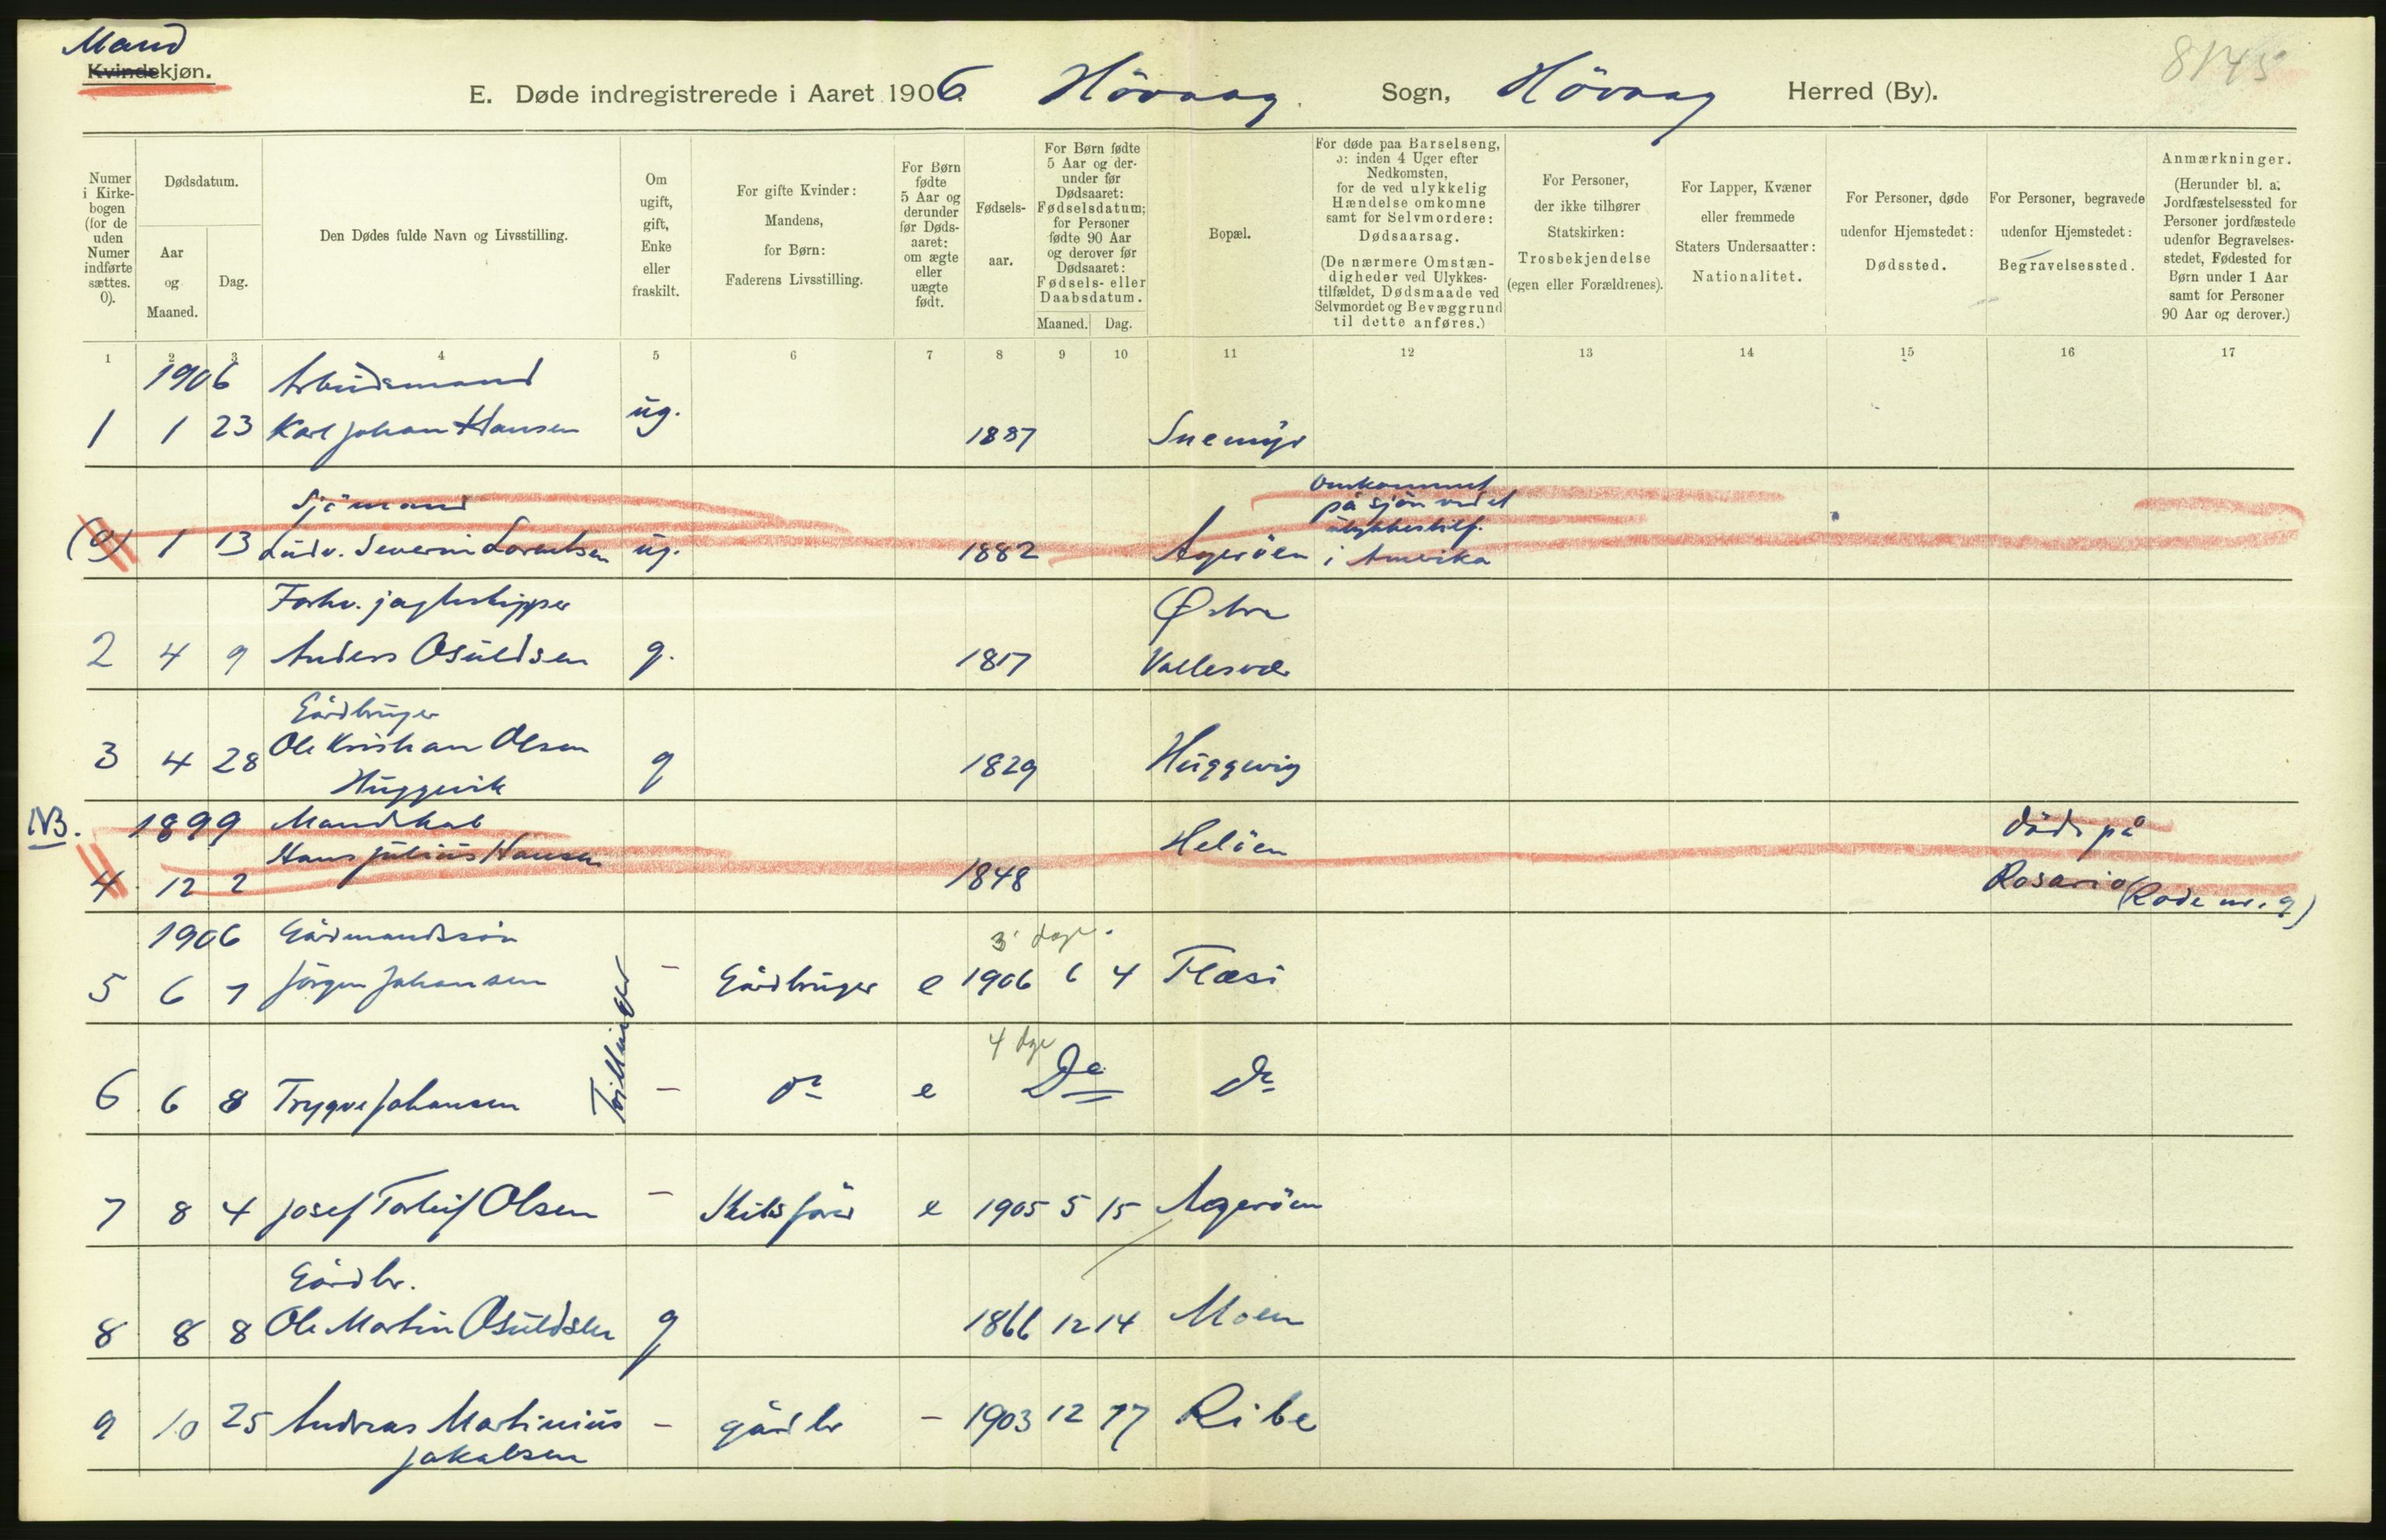 Mand
Kvindekjøn.
E. Døde indregistrerede i Aaret 1906 Hövaag. Sogn, Hövaag Herred (By).
8/45
Numer i Kirke- bogen (for de uden Numer indførte sættes. 0).
Dødsdatum.
Aar og Maaned.
Dag.
Den Dødes fulde Navn og Livsstilling.
Om ugift, gift, Enke eller fraskilt.
For gifte Kvinder: Mandens, for Børn: Faderens Livsstilling.
For Børn fødte 5 Aar og derunder før Døds- aaret: om ægte eller uægte født.
Fødsels- aar.
For Børn fødte 5 Aar og der- under før Dødsaaret: Fødselsdatum; for Personer fødte 90 Aar og derover før Dødsaaret: Fødsels- eller Daabsdatum.
Maaned. Dag.
Bopæl.
For døde paa Barselseng, ɔ: inden 4 Uger efter Nedkomsten, for de ved ulykkelig Hændelse omkomne samt for Selvmordere: Dødsaarsag. (De nærmere Omstæn- digheder ved Ulykkes- tilfældet, Dødsmaade ved Selvmordet og Bevæggrund til dette anføres.)
For Personer, der ikke tilhører Statskirken: Trosbekjendelse (egen eller Forældrenes).
For Lapper, Kvæner eller fremmede Staters Undersaatter: Nationalitet.
For Personer, døde udenfor Hjemstedet: Dødssted.
For Personer, begravede udenfor Hjemstedet: Begravelsessted.
Anmærkninger. (Herunder bl. a. Jordfæstelsessted for Personer jordfæstede udenfor Begravelses- stedet, Fødested for Børn under 1 Aar samt for Personer 90 Aar og derover.)
1 2 3 4 5 6 7 8 9 10 11 12 13 14 15 16 17
1906 Arbeidsmand
1 1 23 Karl Johan Hansen ug. 1887 Snemyr
Sjömand omkommet
på sjön ved et
ulykkestilf.
(0) 1 13 Ludv. Severin Lorentsen ug. 1882 Agerøen i Amerika
Forhv. jagtskipper Østre
2 4 9 Anders Osuldsen g. 1817 Vallesvær
Gårdbruger
3 4 28 Ole Kristian Olsen g 1829 Huggevig
Huggevik
NB. 1899 Mandskab döde på
Hans Julius Hansen Helöen
4 12 2 1848 Rosario (Rode nr. 9)
1906 Gårdmandssön 3 dage.
5 6 7 Jörgen Johansen – Gårdbruger e 1906 6 4 Flæsi
Tvillinger
4 dge
6 6 8 Trygve Johansen – do e Do do
7 8 4 Josef Torleif Olsen – Skibsförer e 1905 5 15 Agerøen
Gårdbr.
8 8 8 Ole Martin Osuldsen g 1866 12 14 Moen
9 10 25 Andreas Martinius – gårdbr – 1903 12 17 Ribe
Jakobsen